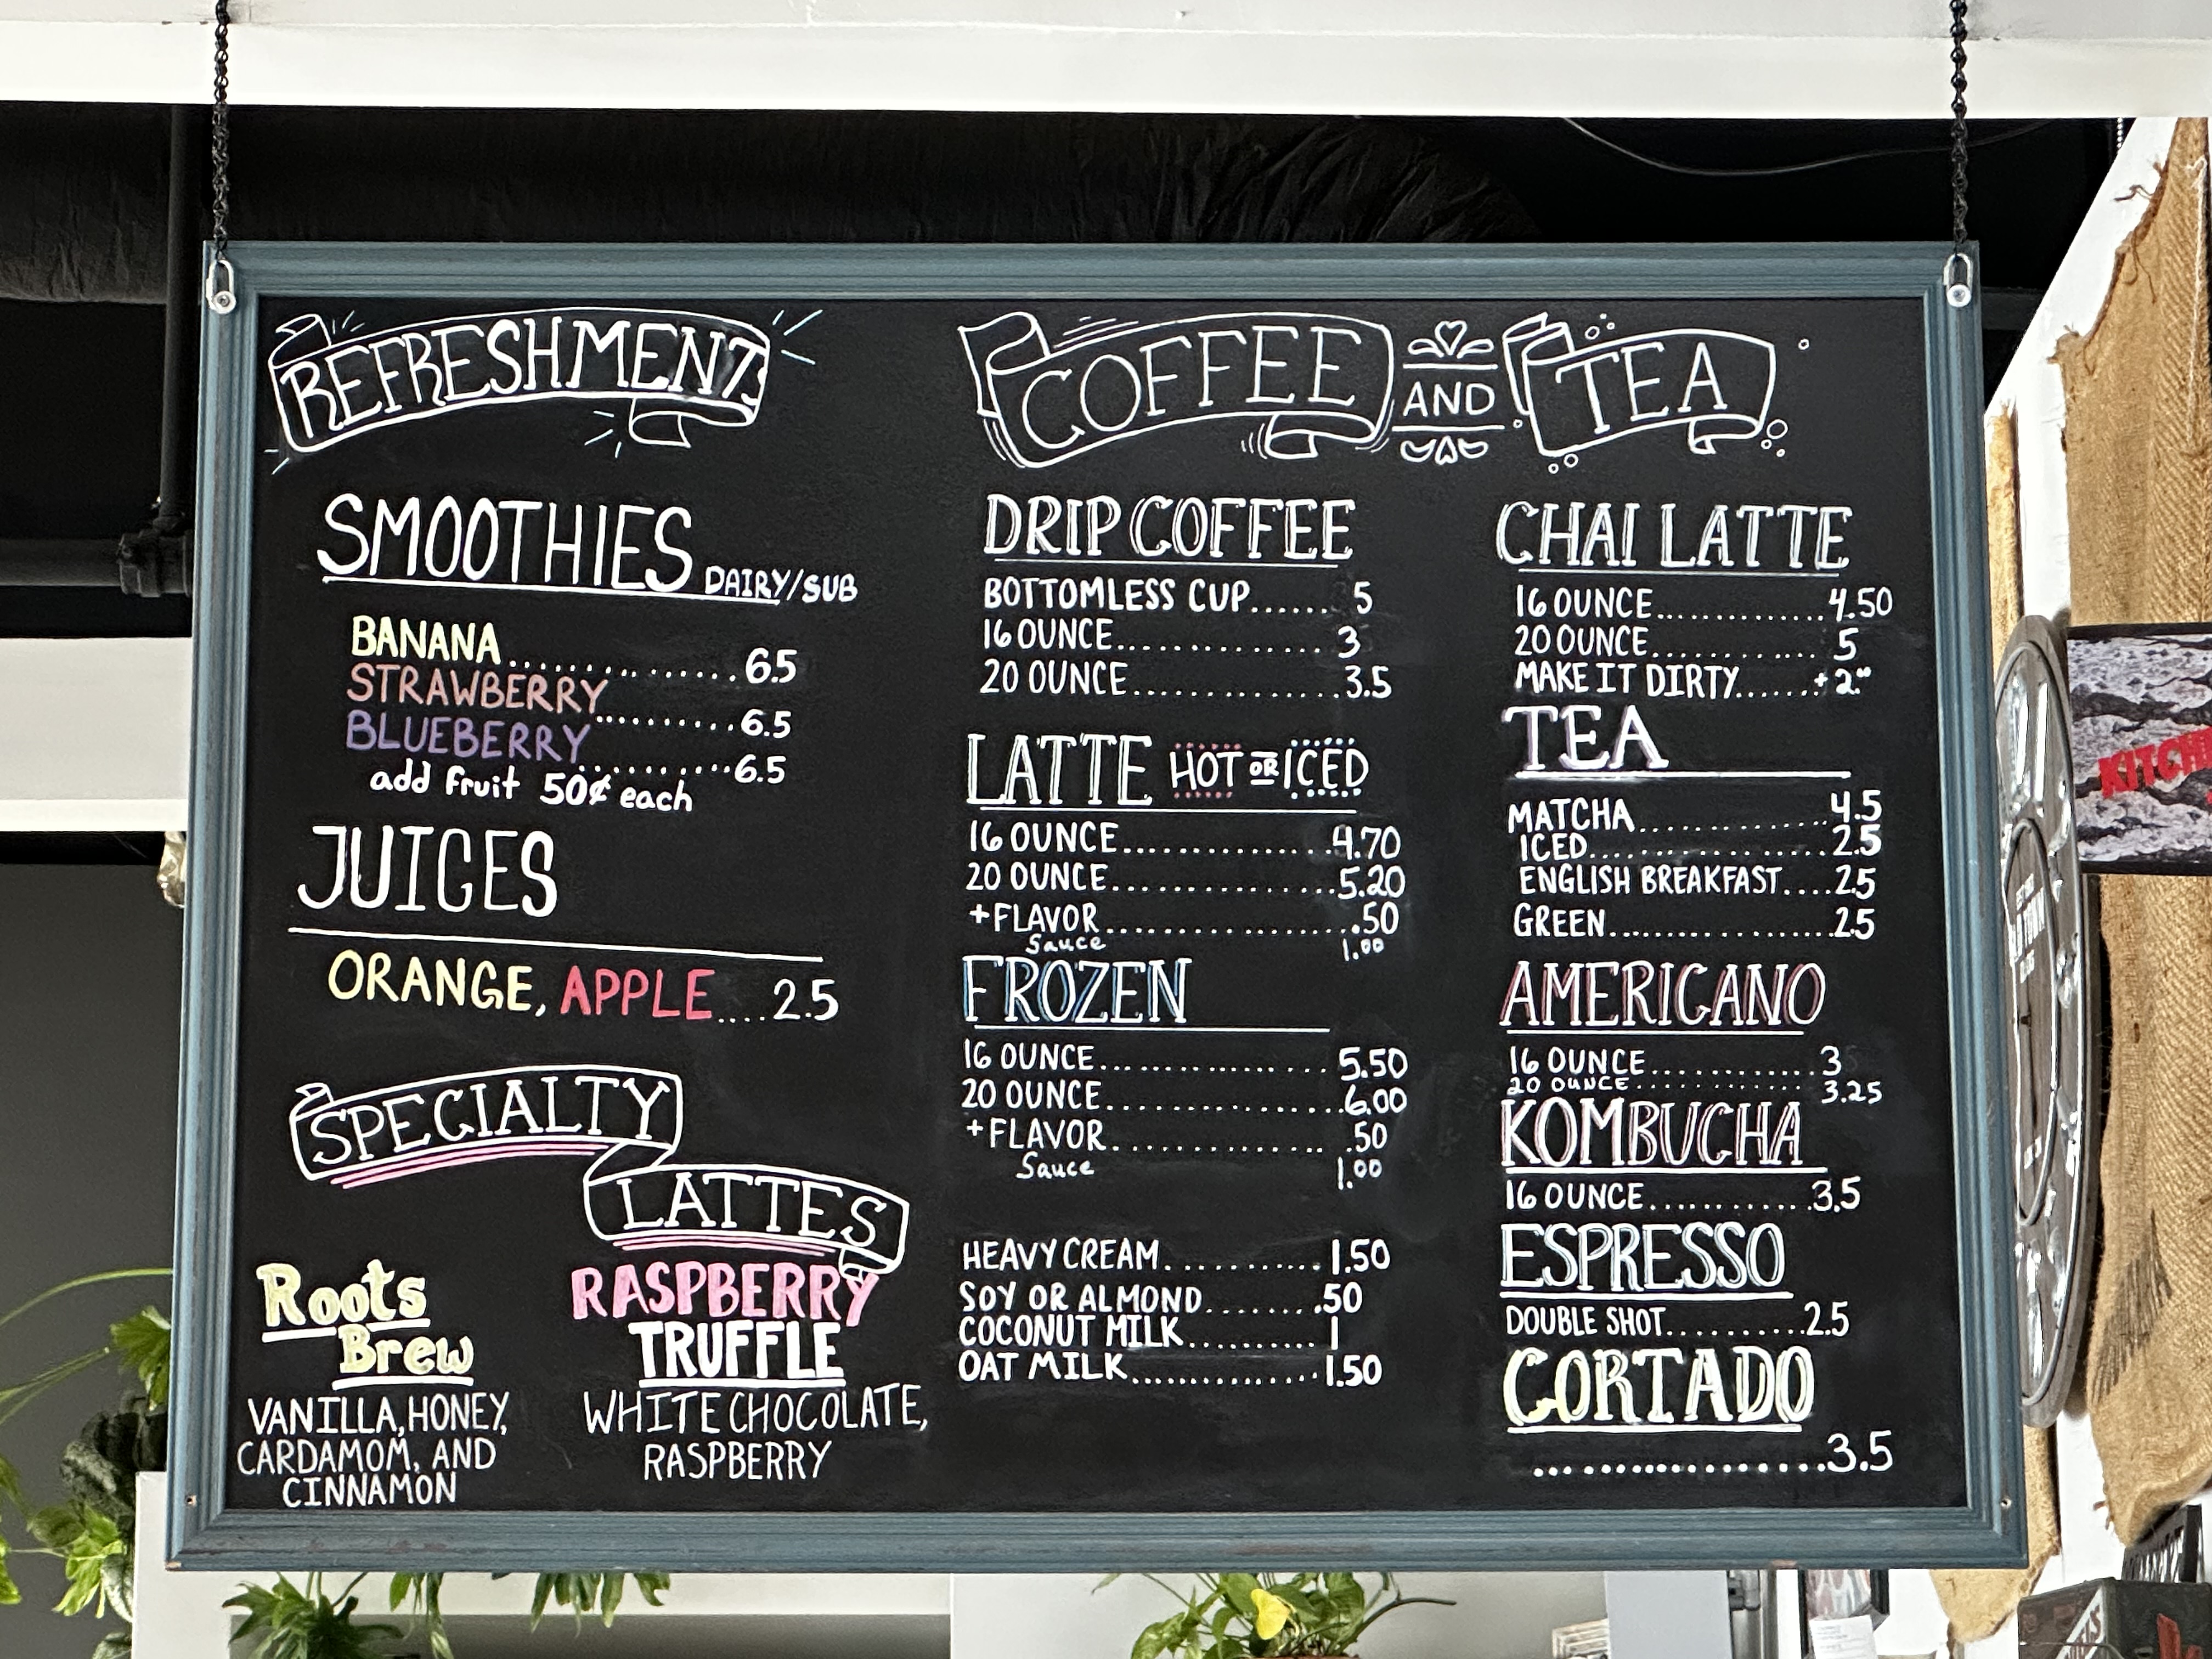 REFRESHMENTS
SMOOTHIES DAIRY/SUB
BANANA.............6.5
STRAWBERRY..........6.5
BLUEBERRY..........6.5
add fruit 50¢ each
JUICES
ORANGE, APPLE....2.5
SPECIALTY
LATTES
Roots
Brew
VANILLA, HONEY,
CARDAMOM, AND
CINNAMON
RASPBERRY
TRUFFLE
WHITE CHOCOLATE,
RASPBERRY
COFFEE AND TEA
DRIP COFFEE
BOTTOMLESS CUP...... 5
16 OUNCE............... 3
20 OUNCE...............3.5
LATTE HOT OR ICED
16 OUNCE...............4.70
20 OUNCE...............5.20
+FLAVOR...............50
Sauce 1.00
FROZEN
16 OUNCE...............5.50
20 OUNCE...............6.00
+FLAVOR............... .50
Sauce 1.00
HEAVY CREAM............1.50
SOY OR ALMOND.......50
COCONUT MILK...........1
OAT MILK...............1.50
CHAI LATTE
16 OUNCE.............4.50
20 OUNCE............. 5
MAKE IT DIRTY......+2.00
TEA
MATCHA.............4.5
ICED.................2.5
ENGLISH BREAKFAST....2.5
GREEN................2.5
AMERICANO
16 OUNCE.............3
20 OUNCE............. 3.25
KOMBUCHA
16 OUNCE...........3.5
ESPRESSO
DOUBLE SHOT..........2.5
CORTADO
.................3.5